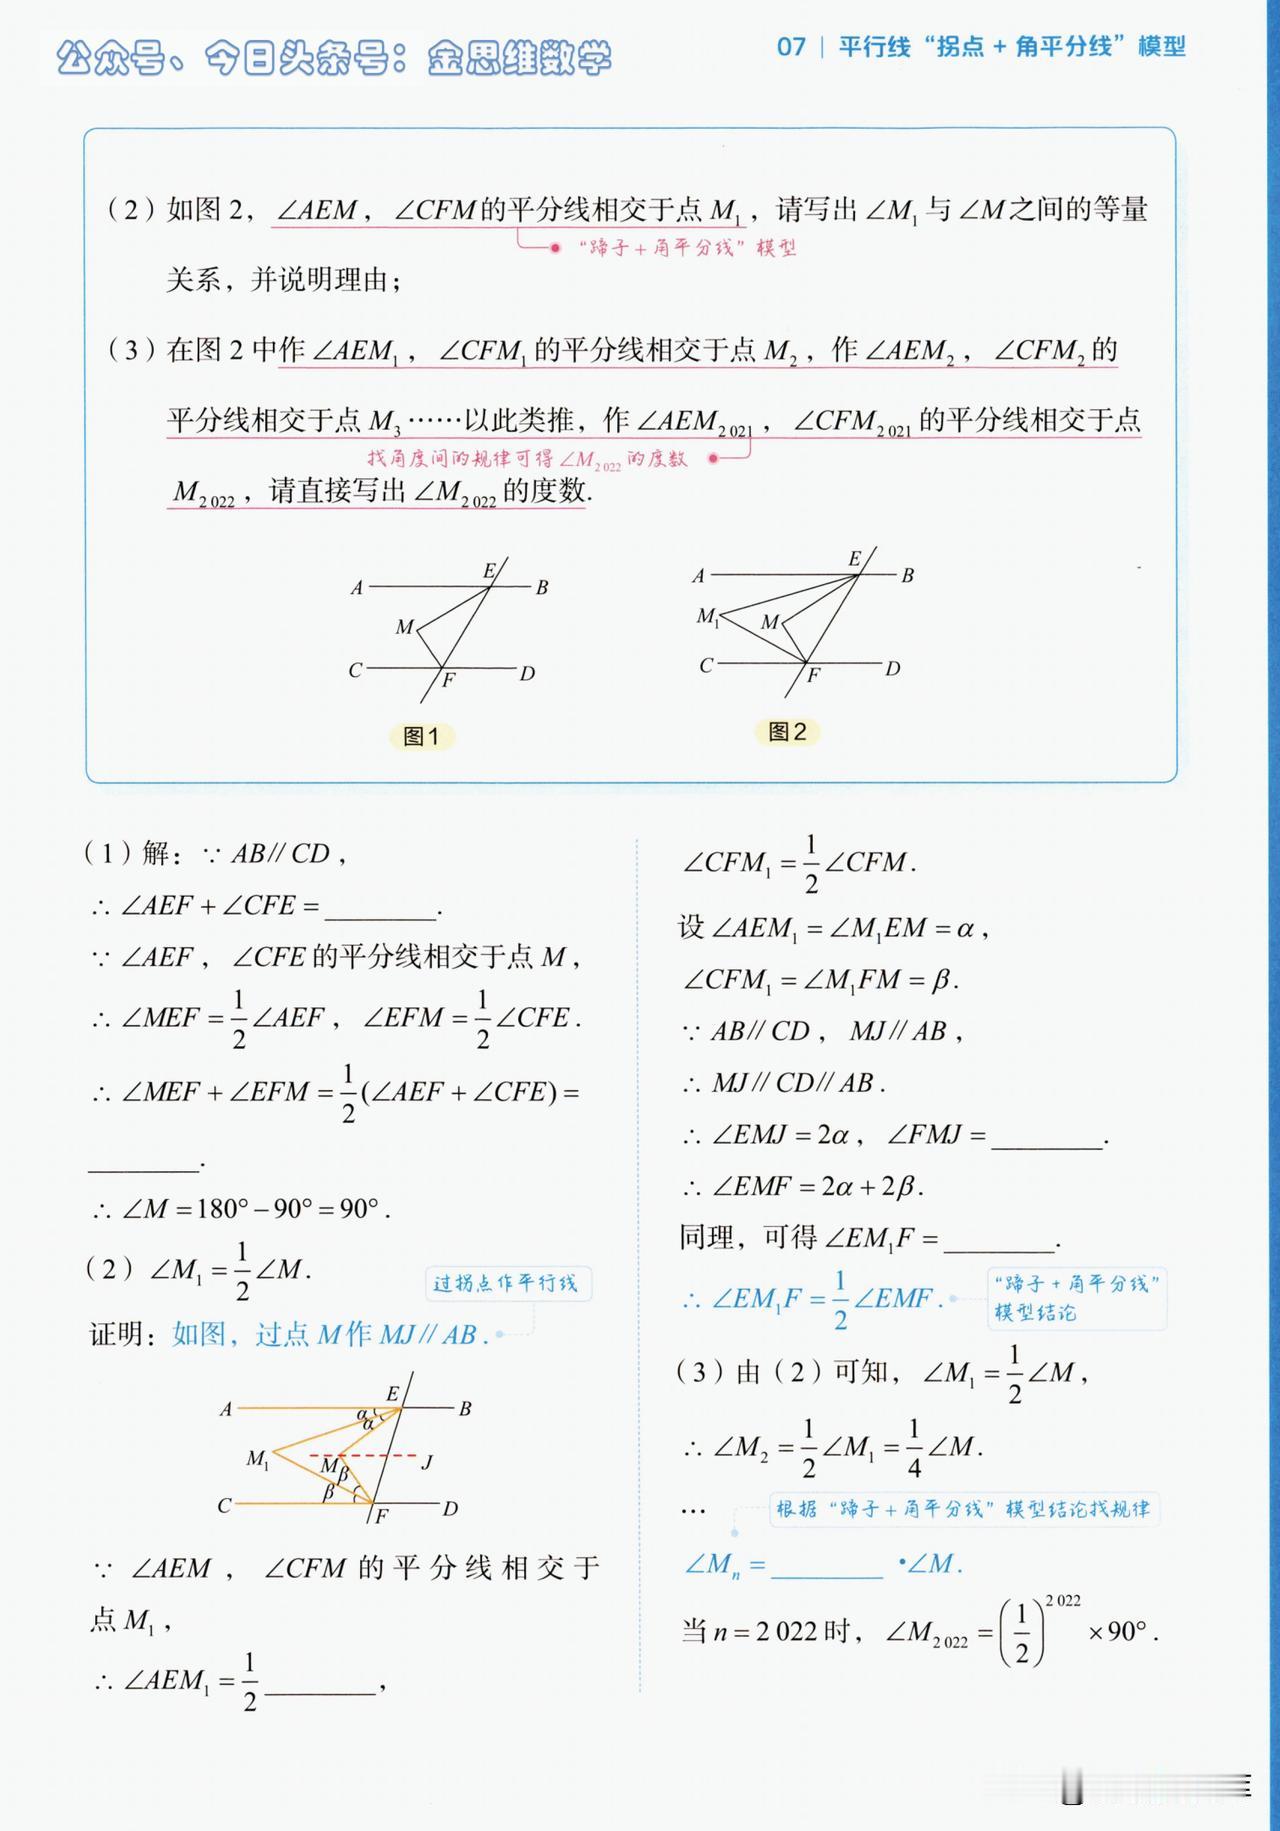 公众号、今日头条号：金思维数学
07 | 平行线“拐点 + 角平分线”模型
（2）如图 2，∠AEM，∠CFM的平分线相交于点 M₁，请写出 ∠M₁ 与 ∠M之间的等量
“蹄子 + 角平分线”模型
关系，并说明理由；
（3）在图 2 中作 ∠AEM₁，∠CFM₁ 的平分线相交于点 M₂，作 ∠AEM₂，∠CFM₂ 的
平分线相交于点 M₃ ……以此类推，作 ∠AEM₂₀₂₁，∠CFM₂₀₂₁ 的平分线相交于点
找角度间的规律可得 ∠M₂₀₂₂ 的度数
M₂₀₂₂，请直接写出 ∠M₂₀₂₂ 的度数.
A E B
M
C F D
图1
A E B
M₁ M
C F D
图2
（1）解：∵ AB // CD，
∴ ∠AEF + ∠CFE = ________.
∵ ∠AEF，∠CFE 的平分线相交于点 M，
∴ ∠MEF = 1/2 ∠AEF，∠EFM = 1/2 ∠CFE.
∴ ∠MEF + ∠EFM = 1/2 (∠AEF + ∠CFE) =
________.
∴ ∠M = 180° − 90° = 90°.
（2）∠M₁ = 1/2 ∠M.
过拐点作平行线
证明：如图，过点 M 作 MJ // AB.
A E B
α
α
M₁ M J
β
β
C F D
∵ ∠AEM，∠CFM 的平分线相交于
点 M₁，
∴ ∠AEM₁ = 1/2 ________，
∠CFM₁ = 1/2 ∠CFM.
设 ∠AEM₁ = ∠M₁EM = α，
∠CFM₁ = ∠M₁FM = β.
∵ AB // CD，MJ // AB，
∴ MJ // CD // AB.
∴ ∠EMJ = 2α，∠FMJ = ________.
∴ ∠EMF = 2α + 2β.
同理，可得 ∠EM₁F = ________.
∴ ∠EM₁F = 1/2 ∠EMF.
“蹄子 + 角平分线”
模型结论
（3）由（2）可知，∠M₁ = 1/2 ∠M，
∴ ∠M₂ = 1/2 ∠M₁ = 1/4 ∠M.
…
根据“蹄子 + 角平分线”模型结论找规律
∠Mₙ = ________ •∠M.
当 n = 2 022 时，∠M₂₀₂₂ = (1/2)^2 022 × 90°.